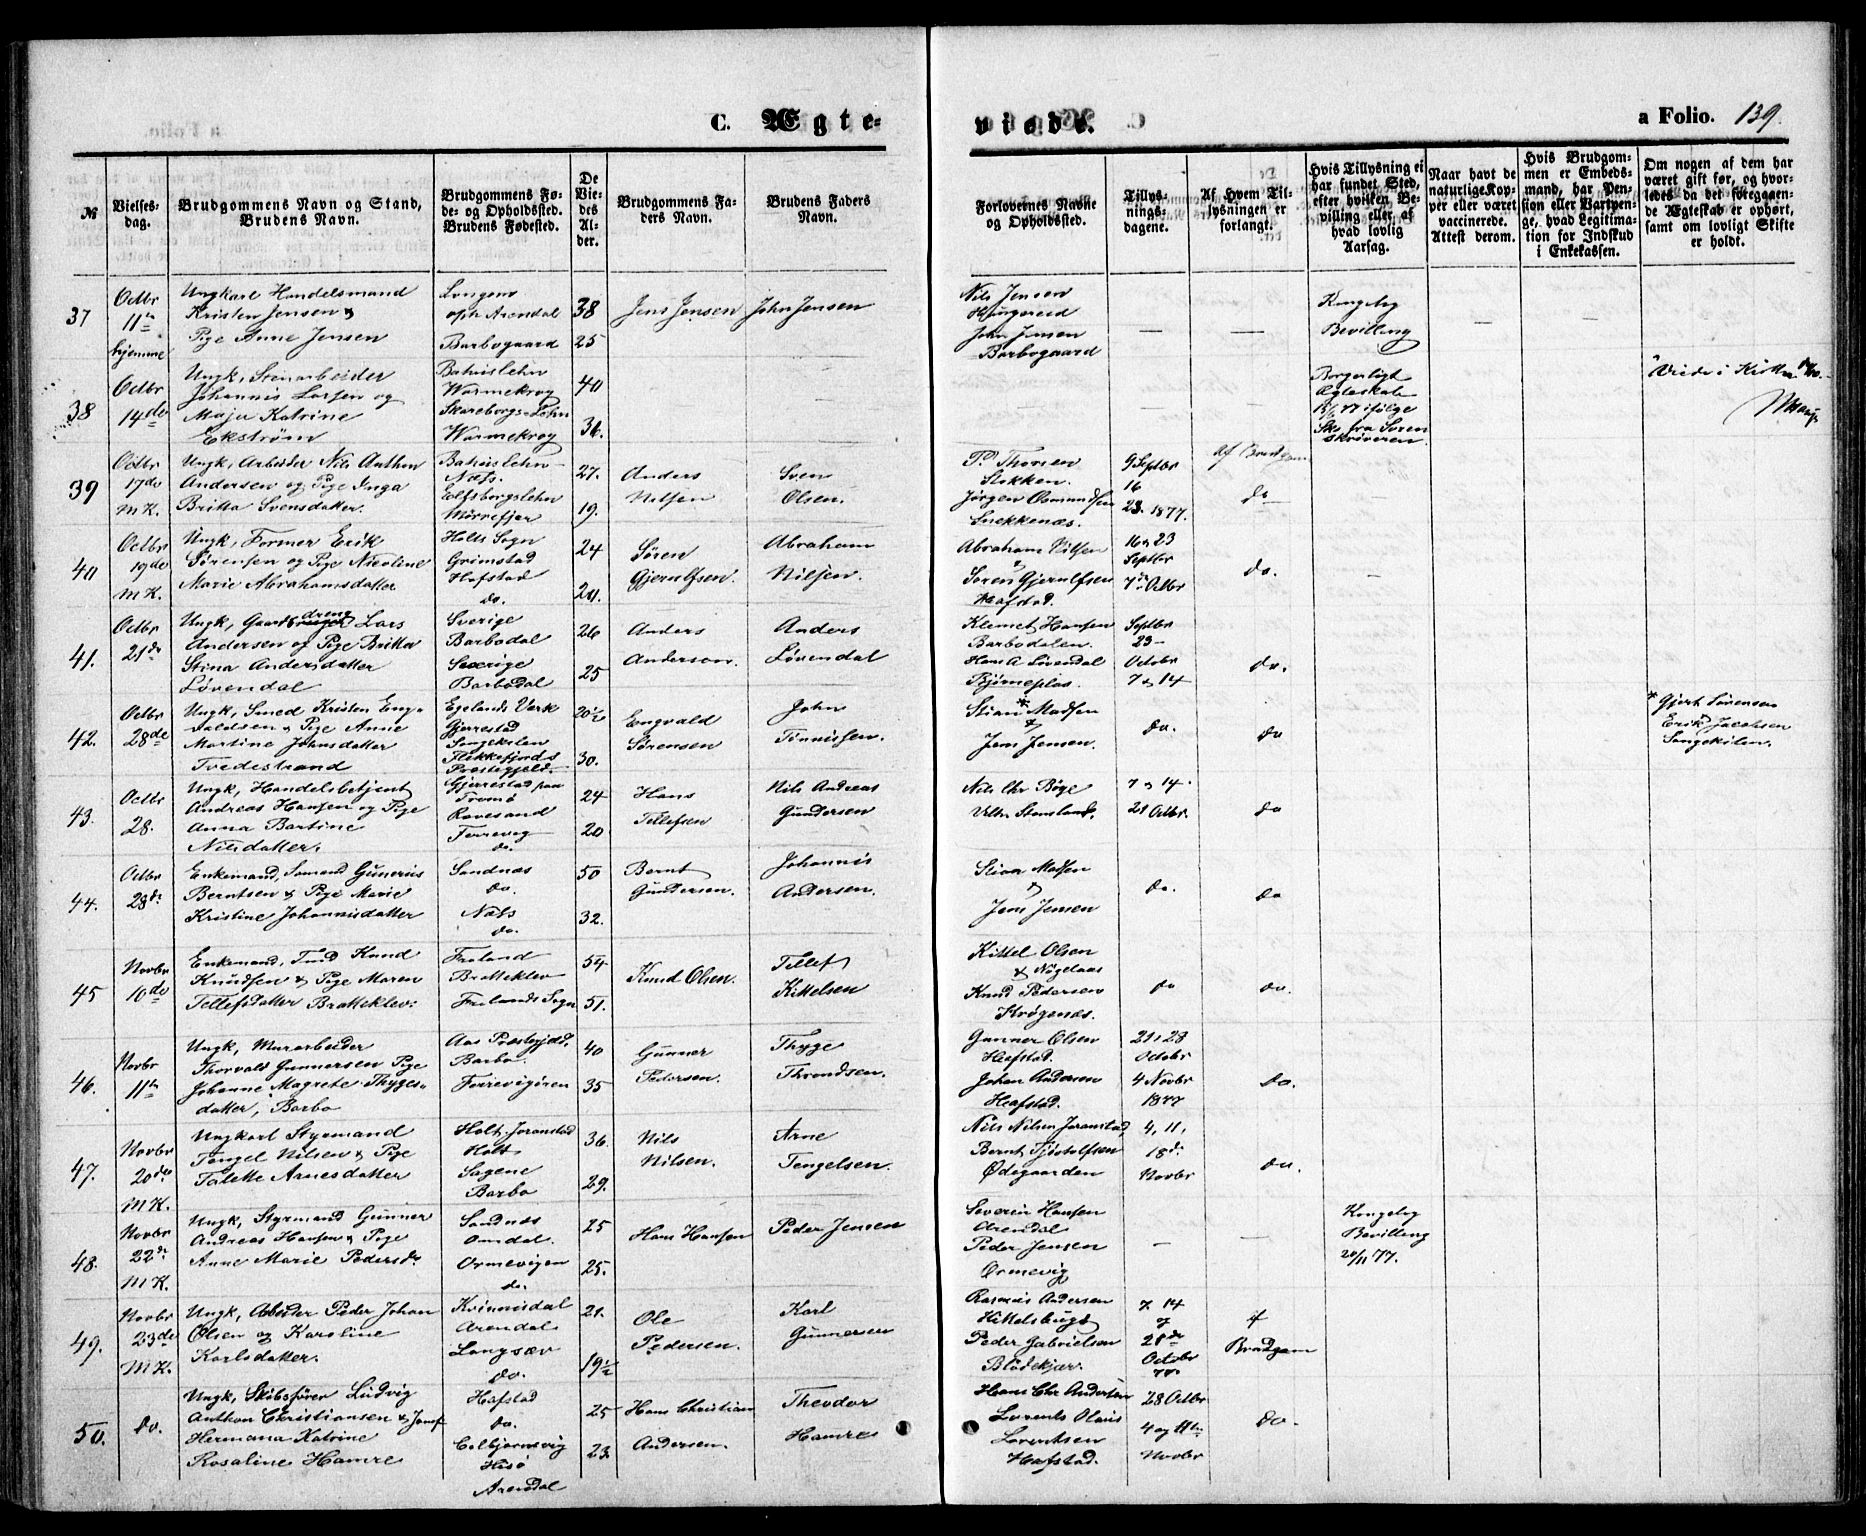 C. Ægte-
viede.
a Folio. 139.
№
Vielses-
dag.
Brudgommens Navn og Stand,
Brudens Navn.
Brudgommens Fø-
de- og Opholdssted.
Brudens Fødested.
De
Vie-
des
Al-
der.
Brudgommens Fa-
ders Navn.
Brudens Faders
Navn.
Forlovernes Navne
og Opholdssted.
Tillys-
nings-
dagene.
Af Hvem Til-
lysningen er
forlangt.
Hvis Tillysning ei
har fundet Sted,
efter hvilken Be-
villing eller af
hvad lovlig
Aarsag.
Naar havt de
naturlige Kop-
per eller været
vaccinerede.
Attest derom.
Hvis Brudgom-
men er Embeds-
mand, har Pen-
sion eller Vartpen-
ge, hvad Legitima-
tion for Indskud
i Enkekassen.
Om nogen af dem har
været gift før, og hvor-
ledes da det foregaaen-
de Ægteskab er ophørt,
samt om lovligt Skifte
er holdt.
37
Octbr
11te
hjemme
Ungkarl Handelsmand
Kristen Jensen &
Pige Anne Jensen
Arendal
Barbogaard
38
25
Jens Jensen
John Jensen
Nils Jensen
John Jensen
Barbogaard
Kongelig
Bevilling
38
Octbr
14de
Ungk, Stenarbeider
Johannis Larsen og
Maja Katrine
Ekstrøm
Bahuslehn
Warmekrog
Skareborgs Lehn
Warmekrog
40
36.
Borgerligt
Ægteskab
ifølge
fra Soren
skriveren.
39
Octbr
17de
M K.
Ungk, Arbeider Nils Anthon
Andersen og Pige Inga
Britta Svensdatter.
Bahuslehn
Næs.
Elfsborgslehn
Mørrefjær
27.
19.
Anders
Nilsen
Sven
Olsen.
Stokken.
Jørgen Osmundsen
Snekkenæs.
9 Septbr
16
23. 1877.
af Brudgom
do
40
Octbr
19de
M K.
Ungk, Former Erik
Sørensen og Pige Nicoline
Marie Abrahamsdatter
Holts Sogn
Grimstad
Hafstad
do.
24
20.
Søren
Gjerulfsen.
Abraham
Nilsen.
Abraham Nilsen
Søren Gjerulfsen
Hafstad.
16 & 23
Septbr
7de Octbr
do.
41.
Octbr
21de
Ungk, Gaardsdreng Lars
Andersen og Pige Britta
Stina Andersdatter
Løvendal
Sverige
Barbodal
Sverige
Barbodal
26
25
Anders
Anderson.
Anders
Løvendal
Klemet Hansen
Barbodalen.
Hans A. Løvendal
Bjørneplas.
Septbr
23
Octobr
7 & 14
do.
42.
Octbr
28de
Ungk, Smed Kristen Eng-
valdsen & Pige Anne
Martine Johnsdatter
Tvedestrand
Egelands Verk
Gjerrestad
Songekilen
Flekkefjords
Prestegjeld.
20½
30.
Engvald
Sørensen
John
Tønnisen.
Stian Madsen
&
Jens Jensen.
do.
do
* Gjert Sørensen
Erik Jacobsen
Songekilen.
43.
Octbr
28.
Ungk, Handelsbetjent
Andreas Hansen og Pige
Anna Bertine
Nilsdatter.
Gjerrestad paa
Tromø
Revesand
Torrevig
do.
24
20
Hans
Tellefsen
Nils Andreas
Gundersen
Nils Chr Bøge
7 & 14
21 Octbr.
do
44.
Octbr
28de
Enkemand, Sømand Gunerius
Berntsen & Pige Marie
Kristine Johannisdatter
Sandnæs
do.
Næs
do.
50
32.
Bernt
Gundersen.
Johannis
Andersen.
Stian Madsen
&
Jens Jensen
do.
do
45
Novbr
10de
Enkemand, Knud
Knudsen & Pige Maren
Tellefsdatter Bratteklev.
Froland
Bratteklev
Frolands Sogn
54
51.
Knud Olsen.
Tellef
Kittelsen
Kittel Olsen
Knud Pedersen
Krøgenæs.
do
do.
46.
Novbr
11te
Ungk, Murarbeider
Thorvald Gunnersen Pige
Johanne Magrete Thyges-
datter, Barbo
Aas Prestegjeld.
Barbo.
40
35
Gunner
Pedersen.
Thyge
Throndsen.
Gunner Olsen
Hafstad.
Johan Andersen
Hafstad.
21 & 28
Octobr
4 Novbr
1877
do.
47.
Novbr
20de
M K.
Ungkarl Styrmand
Tengel Nilsen & Pige
Talette Arnesdatter
Holt, Joranstad
Holt
Sagene
Barbo
36.
29.
Nils
Nilsen.
Arne
Tengelsen.
Nils Nilsen Joranstad,
Bernt Tjøstolfsen
Ødegaarden
4, 11,
18de
Novbr
do.
48.
Novbr
22de
M K.
Ungk, Styrmand Gunner
Andreas Hansen & Pige
Anne Marie Pedersdr.
Sandnæs
Omdal.
Ormevigen
do.
25
25.
Hans Hansen
Peder Jensen
Severin Hansen
Arendal
Peder Jensen
Ormevig
Kongelig
Bevilling
20/11 77.
49.
Novbr
23de
M K.
Ungk, Arbeider Peder Johan
Olsen og Karoline
Karlsdatter.
Kvinnisdal
Arendal.
Langsæv
do.
21.
19½
Ole
Pedersen.
Karl
Gunnersen
Rasmus Andersen
Kittelsbugt
Peder Gabrielsen
Blødekjær.
7. 14
&
21de
Octobr
77.
af
Brudgom
50.
do.
Ungk, Skibsfører Ludvig
Anthon Christiansen & Jomf
Hermana Katrine
Rosaline Hamre
Hafstad
do.
Colbjørnsvig
Hisø
Arendal
25
23.
Hans Christian
Andersen.
Theodor
Hamre
Hans Chr Andersen
Lorents Olaus
Lorentsen
Hafstad.
28 Octbr
4 og 11te
Novbr
do.